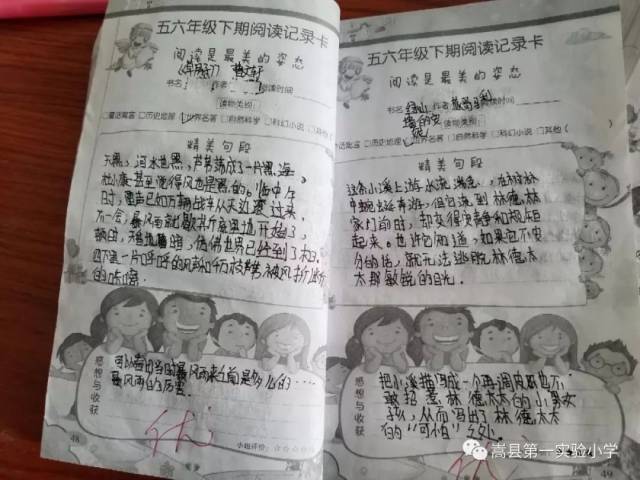 五六年级下期阅读记录卡
阅读是最美的姿态
《草房子》 曹文轩
书名 作者 阅读时间
读物类别:
童话寓言 □历史地理 世界名著 □自然科学 □科幻小说 □其他(
精美句段
天黑,河水也黑,芦苇荡成了一片黑海。
杜小康甚至觉得风也是黑的。临中午
时,雷声已如万辆战车从天边轰过来,
不一会,暴风雨就歇斯底里地开始了,
顿时,天昏地暗,仿佛世界已经到了末日。
四下里一片呼呼的风声和千万枝芦苇被风折断
的咔嚓
感想与收获
可以看出当时暴风雨来之前是多么的……
暴风雨的厉害
优
小组评价:☆☆☆☆☆
48
五六年级下期阅读记录卡
阅读是最美的姿态
书名 绿山墙的安妮 作者 阅读时间
读物类别:
童话寓言 □历史地理 世界名著 □自然科学 □科幻小说 □其他(
精美句段
这条小溪上游水流湍急,在树林
中蜿蜒奔游,但它流到林德林
家门前时,却变得安静和规矩
起来。也许它知道,如果它不安
分的话,就无法逃脱林德太
太那敏锐的目光。
感想与收获
把小溪描写成一个再调皮也不
敢招惹林德太太的小男女
孩,从而写出了林德太太
的"可怕"之处。
优
49
嵩县第一实验小学